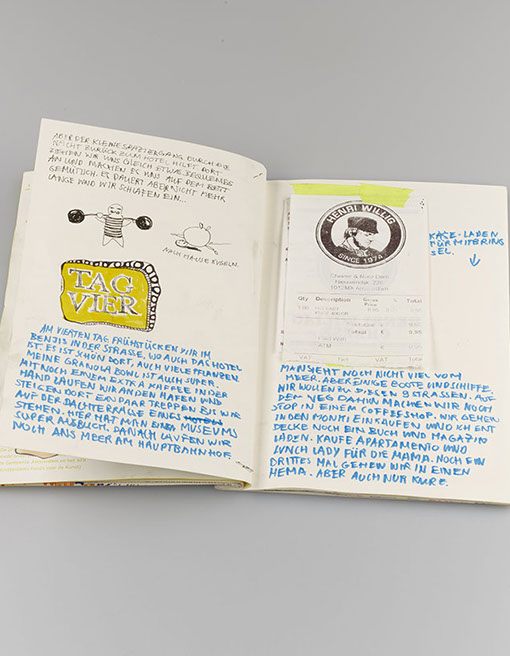 ABER DER KLEINE SPAZIERGANG DURCH DIE
ZURÜCK ZUM HOTEL HILFT. DORT
ZIEHEN WIR UNS GLEICH ETWAS BEQUEMES
AN UND MACHEN ES UNS AUF DEM BETT
GEMÜTLICH. ES DAUERT ABER NICHT MEHR
LANGE UND WIR SCHLAFEN EIN...
NACH HAUSE KUGELN.
TAG
VIER
AM VIERTEN TAG FRÜHSTÜCKEN WIR IM
BENJIS IN DER STRASSE, WO AUCH DAS HOTEL
IST. ES IST SCHÖN DORT, AUCH VIELE PFLANZEN
MEINE GRANOLA BOWL IST AUCH SUPER.
MIT NOCH EINEM EXTRA KAFFEE IN DER
HAND LAUFEN WIR AN DEN HAFEN UND
STEIGEN DORT EIN PAAR TREPPEN BIS WIR
AUF DER DACHTERRASSE EINES MUSEUMS
STEHEN. HIER HAT MAN EINEN
SUPER AUSBLICK. DANACH LAUFEN WIR
NOCH ANS MEER AM HAUPTBAHNHOF.
HENRI WILLIG
SINCE 1974
Cheese & More Dam
Qty Description Price % Total
VAT Total
KÄSE-LADEN
FÜR MITBRING
SEL.
MAN SIEHT NOCH NICHT VIEL VOM
MEER, ABER EINIGE BOOTE UND SCHIFFE.
WIR WOLLEN ZU DIESEN 9 STRASSEN. AUF
DEM WEG DAHIN MACHEN WIR NOCH
STOP IN EINEM COFFEESHOP. WIR GEHEN
IN DEN MONKI EINKAUFEN UND ICH ENT
DECKE NOCH EIN BUCH UND MAGAZIN
LADEN. KAUFE APARTAMENTO UND
LUNCH LADY FÜR DIE MAMA. NOCH EIN
DRITTES MAL GEHEN WIR IN EINEN
HEMA. ABER AUCH NUR KURZ.